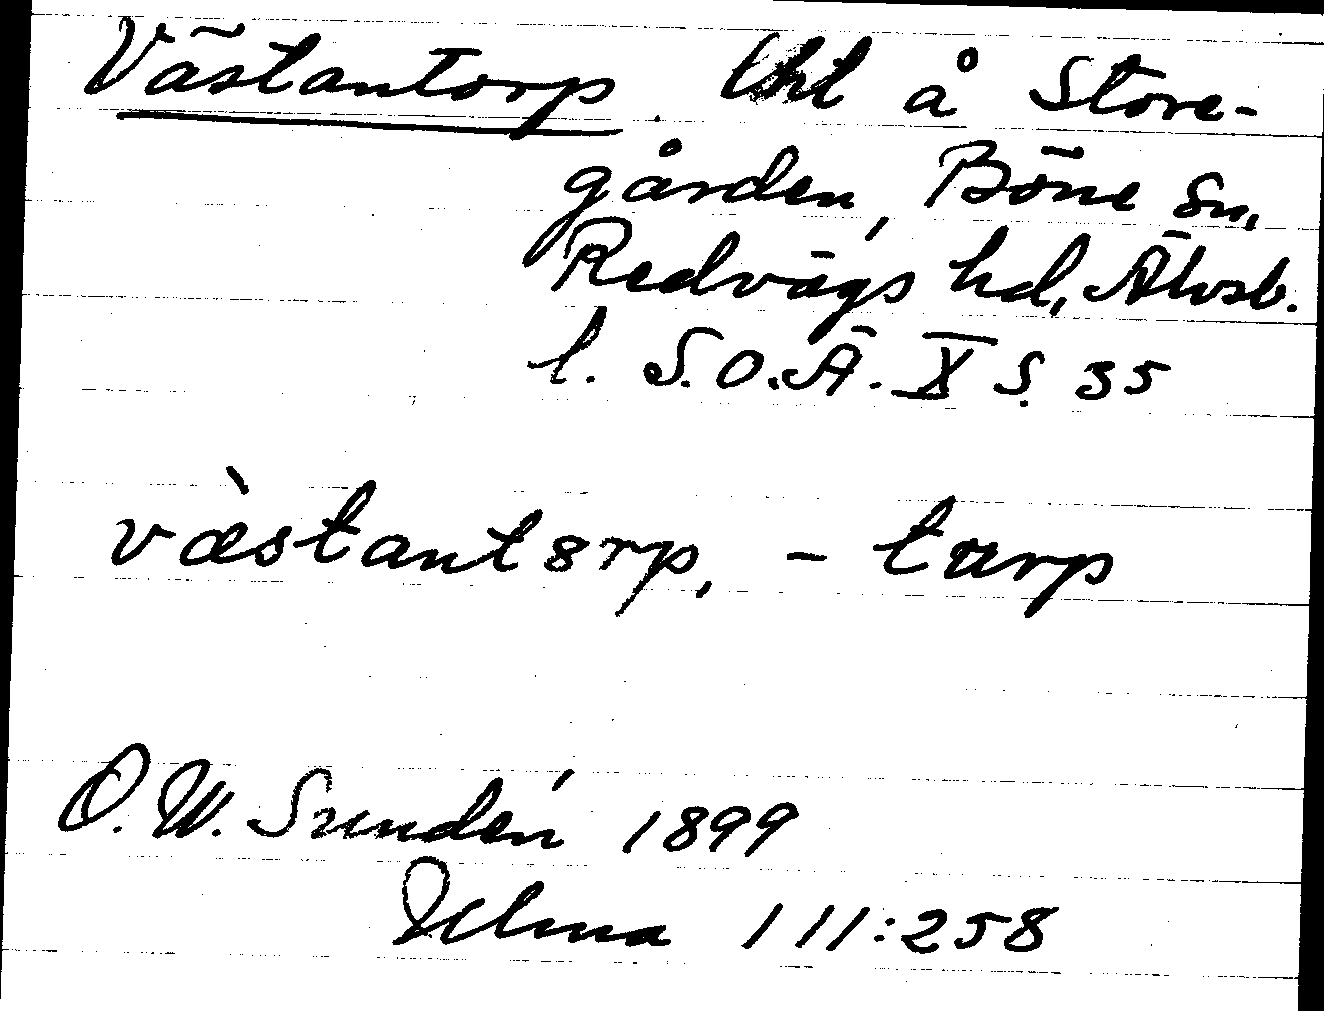 Västantorp. tht å Store-
gården, Böne sn,
Redvägs hd, Älvsb.
l. S.O.Ä. X S. 35
vàstantorp, - tarp
O. W. Sundén 1899
111:258